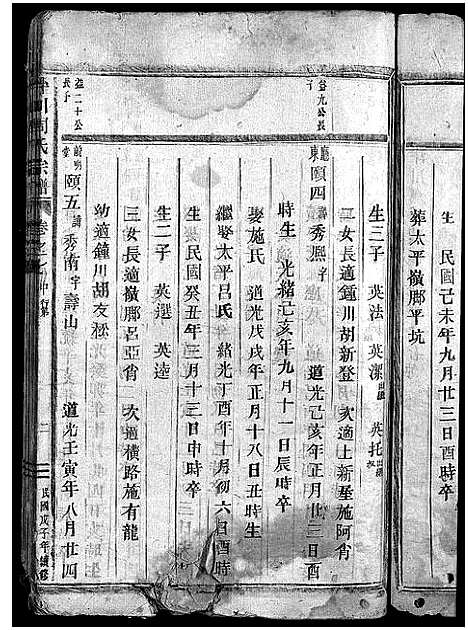 生 民國己未年九月廿三日酉時卒
葬太平嶺腳平坑
生三子 英法 英潔出繼 英托出繼
二女長適鍾川胡新登 次適土新屋施阿肖
益九公長子
廳東 頤四 諱秀熙字 道光己亥年正月廿三日酉
時生 光緒己亥年九月十一日辰時卒
娶施氏 道光戊戌年正月十八日丑時生
繼娶太平呂氏 緒光丁酉年十月初六日酉時
生 民國癸丑年三月十三日申時卒
生二子 英選 英逵
三女長適嶺腳呂亞肖 次適橫路施有龍
幼適鍾川胡友松
益二十公長子
頤五 諱秀南字壽山 道光壬寅年八月廿四
氏宗譜 卷之 行第 二 民國戊子年續修